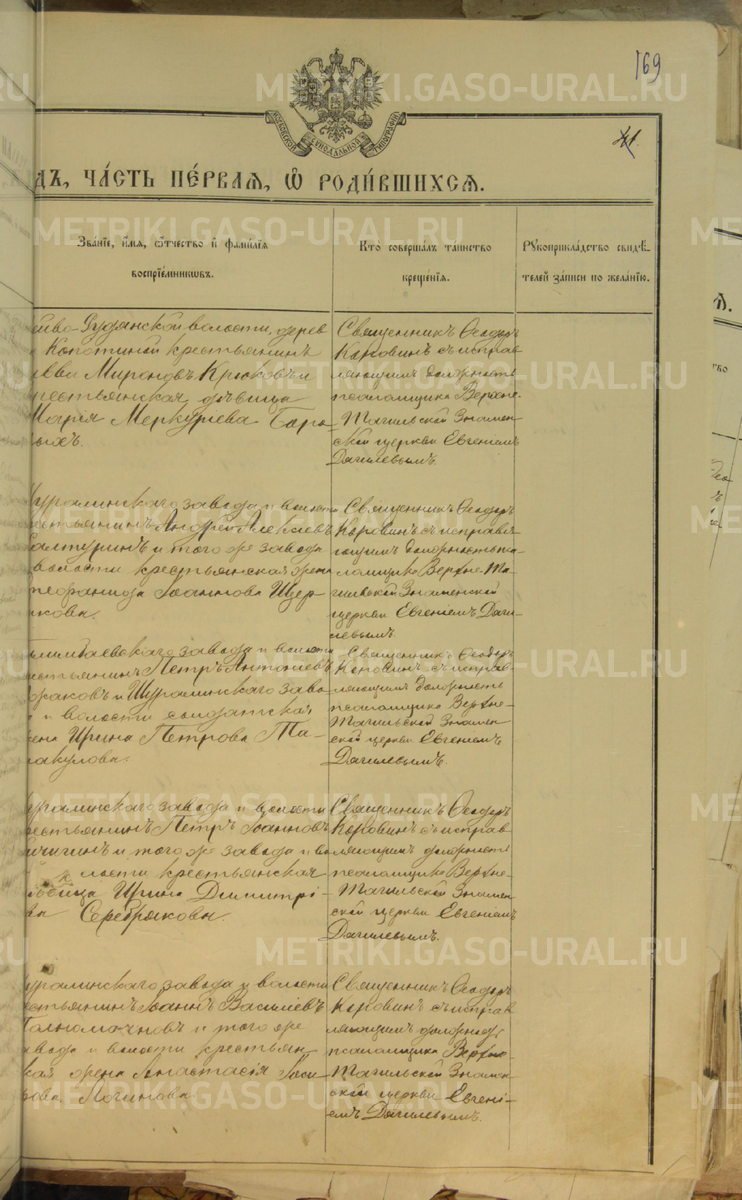 169
41
МОСКОВСКОЙ СѴНОДАЛЬНОЙ ТИПОГРАФІИ
дъ, ча́сть пе́рваѧ, ѡ҆ роди́вшихсѧ.
Зва́нїе, и҆́мѧ, ѻ҆́тчество и҆ фами́лїѧ воспрїе́мникѡвъ.
Кто соверша́лъ та́инство креще́нїѧ.
Рꙋкоприкла́дство свидѣ́телей за́писи по жела́нїю.
ейво-Рудянской волости, дерев
Копотиной крестьянинъ
Савва Мироновъ Крюковъ и
рестьянская дѣвица
Марія Меркурьева
ыхъ.
Священникъ Ѳеодоръ
Коровинъ съ исправ
ляющимъ должность
псаломщика Верхне-
Тагильской Знамен
ской церкви Евгеніемъ
Дагилевымъ.
уралинскаго завода и волости
рестьянинъ Андрей Алексѣевъ
Салтуринъ и того же завода
волости крестьянская жена
тефанида Іоаннова Щер-
акова.
Священникъ Ѳеодоръ
Коровинъ съ исправля
ющимъ должность пса
ломщика Верхне-Та
гильской Знаменской
церкви Евгеніемъ Даги
левымъ.
илимбаевскаго завода и волости
рестьянинъ Петръ Антоніевъ
и Шуралинскаго заво
и волости солдатская
ена Ирина Петрова
акулова.
Священникъ Ѳеодоръ
Коровинъ съ исправ
ляющимъ должность
псаломщика Верхне-
Тагильской Знамен
ской церкви Евгеніемъ
Дагилевымъ.
уралинскаго завода и волости
рестьянинъ Петръ Іоанновъ
ичигинъ и того же завода и во
лости крестьянская
дѣвица Ирина Димитрі
ва Серебрякова.
Священникъ Ѳеодоръ
Коровинъ съ исправ
ляющимъ должность
псаломщика Верхне-
Тагильской Знамен
ской церкви Евгеніемъ
Дагилевымъ.
уралинскаго завода и волости
рестьянинъ Іоаннъ Василіевъ
Полномочновъ и того же
авода и волости крестьян-
кая жена Анастасія Васи
ьева Логинова
Священникъ Ѳеодоръ
Коровинъ съ исправ
ляющимъ должность
псаломщика Верхне-
Тагильской Знамен-
ской церкви Евгені-
емъ Дагилевымъ.
METRIKI.GASO-URAL.RU
METRIKI.GASO-URAL.RU
METRIKI.GASO-URAL.RU
METRIKI.GASO-URAL.RU
METRIKI.GASO-URAL.RU
METRIKI.GASO-URAL.RU
METRIKI.GASO-URAL.RU